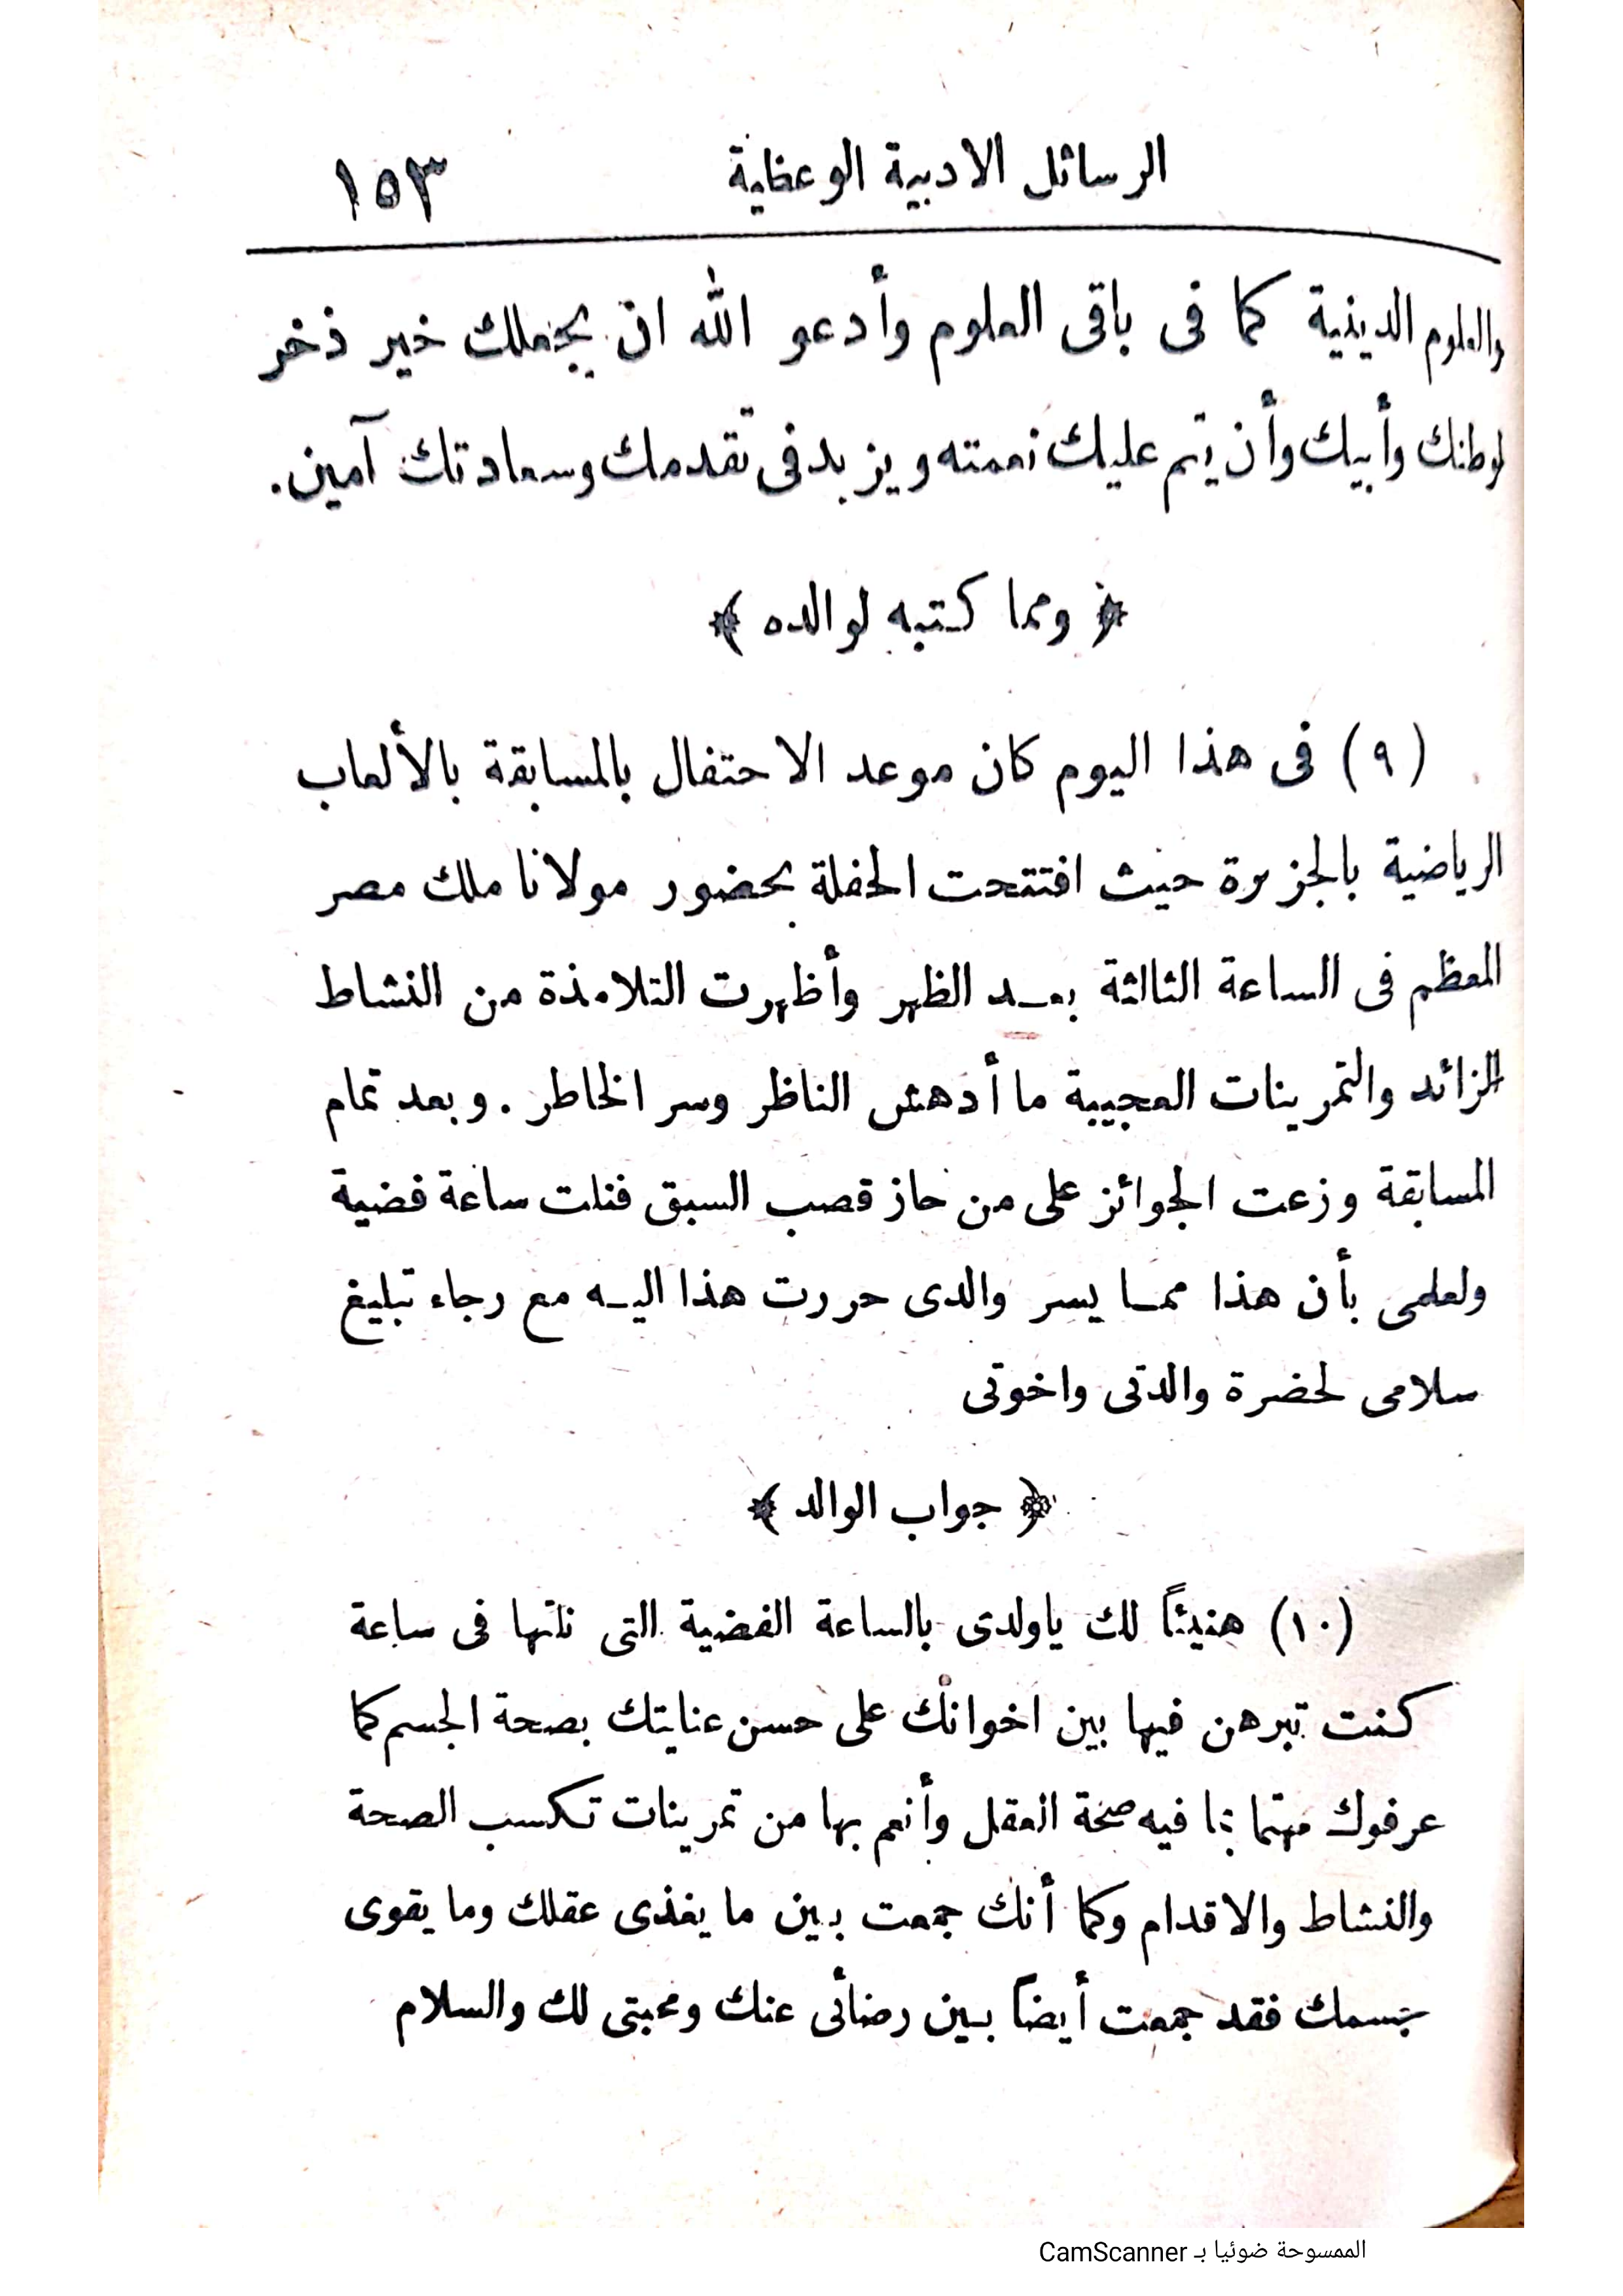 الرسائل الادبية الوعظية ١٥٣
والعلوم الدينية كما فى باقى العلوم وأدعو الله ان يجعلك خير ذخر
لوطنك وأبيك وأن يتم عليك نعمته ويزيد فى تقدمك وسعادتك آمين.
﴿ ومما كتبه لوالده ﴾
(٩) فى هذا اليوم كان موعد الاحتفال بالمسابقة بالألعاب
الرياضية بالجزيرة حيث افتتحت الحفلة بحضور مولانا ملك مصر
المعظم فى الساعة الثالثة بعـد الظهر وأظهرت التلامذة من النشاط
الزائد والتمرينات العجيبة ما أدهش الناظر وسر الخاطر. وبعد تمام
المسابقة وزعت الجوائز على من حاز قصب السبق فنلت ساعة فضية
ولعلمى بأن هذا ممـا يسر والدى حررت هذا اليـه مع رجاء تبليغ
سلامى لحضرة والدتى واخوتى
﴿ جواب الوالد ﴾
(١٠) هنيئاً لك ياولدى بالساعة الفضية التى نلتها فى ساعة
كنت تبرهن فيها بين اخوانك على حسن عنايتك بصحة الجسم كما
عرفوك مهتما بما فيه صحة العقل وأنعم بها من تمرينات تكسب الصحة
والنشاط والاقدام وكما أنك جمعت بين ما يغذى عقلك وما يقوى
جسمك فقد جمعت أيضاً بـين رضائى عنك ومحبتى لك والسلام
الممسوحة ضوئيا بـ CamScanner